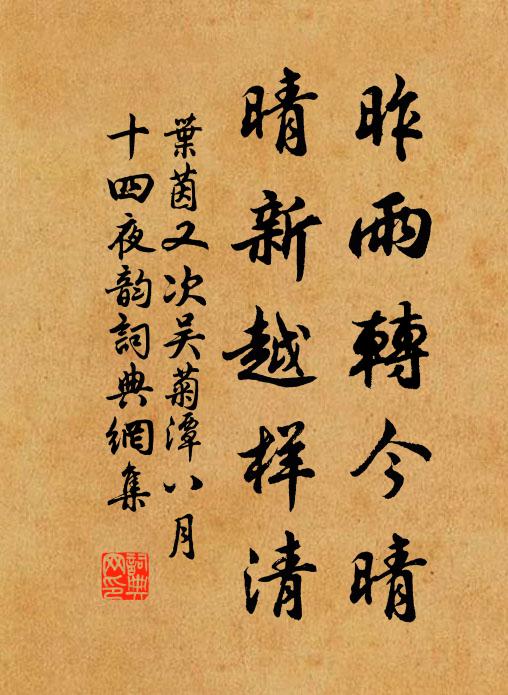 昨雨轉今晴
晴新越样清
葉茵又次吴菊潭八月
十四夜韵詞典網集
詞典
网印